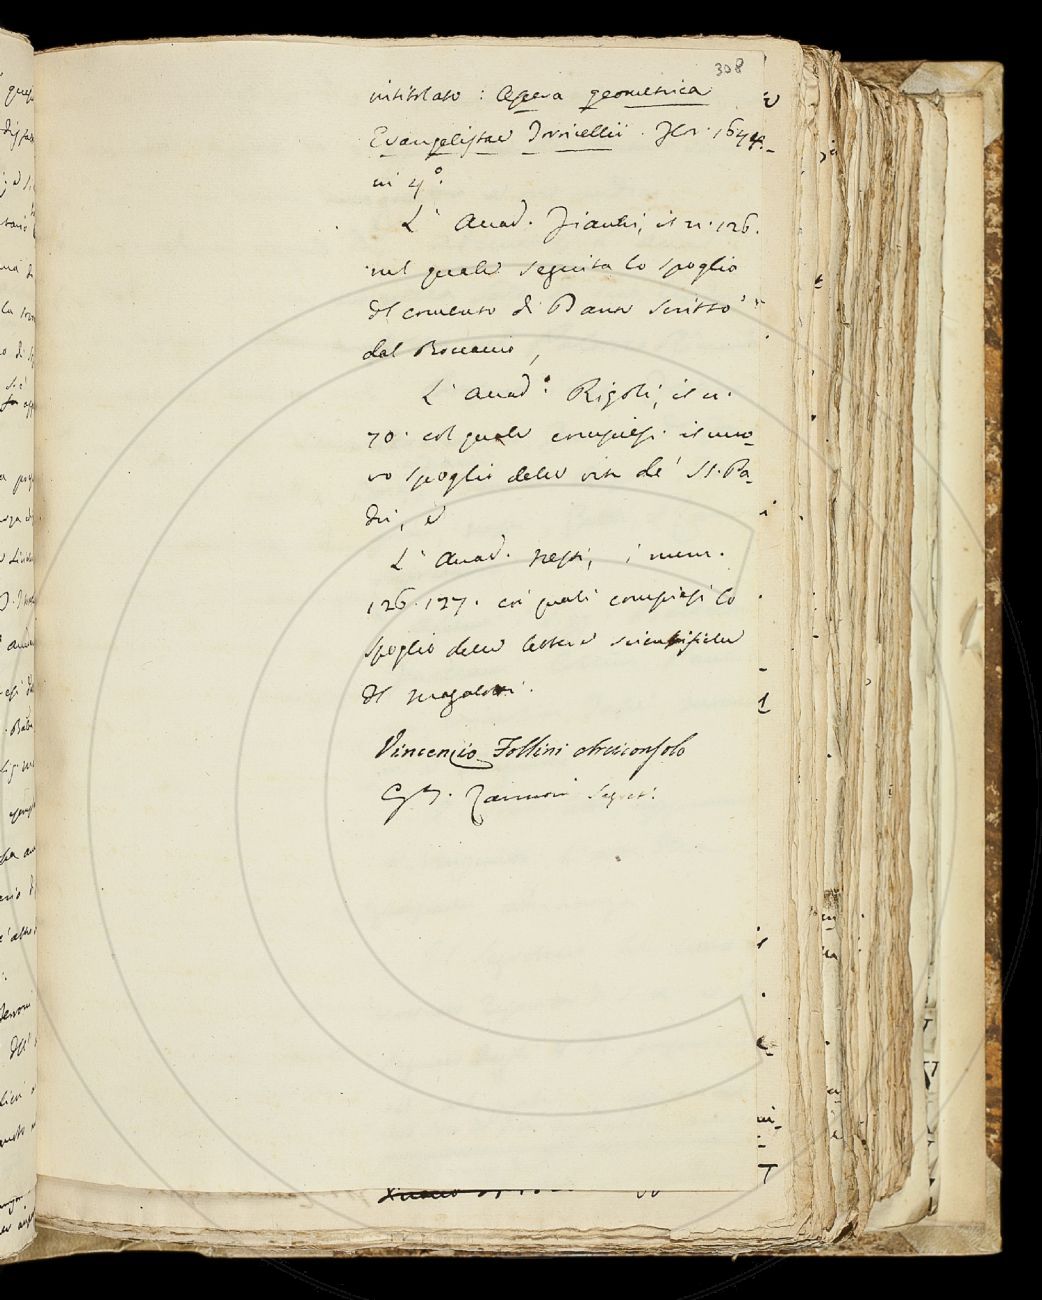 308
intitolato: Opera geometrica
Evangelistae Torricellii. Flor. 1644.
in 4°.
L' Accad. Fiacchi, il n. 126.
nel quale seguita lo spoglio
del comento di Dante scritto
dal Boccaccio,
L' Accad. Rigoli, il n.
70. col quale compiesi il nuo-
vo spoglio delle vite de' SS. Pa-
dri, e
L' Accad. Nesti, i num.
126. 127. coi quali compiesi lo
spoglio delle lettere scientifiche
del Magalotti.
Vincenzio Follini Arciconsolo
G. B. Zannoni Segret.